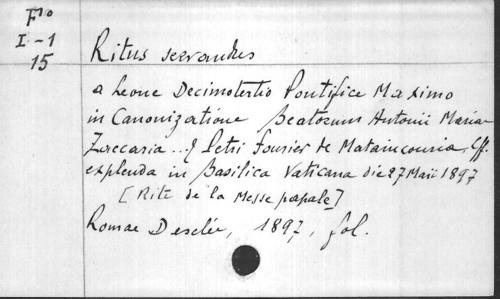 Fᵒ
I-1
15
Ritus servandus
a Leone Decimotertio Pontifice Maximo
in Canonizatione Beatorum Antonii Mariae
Zaccaria ... Petri Fourier de Mataincouria
explenda in Basilica Vaticana die 27 Maii 1897
[Rite de la Messe papale]
Romae Desclée, 1897, fol.